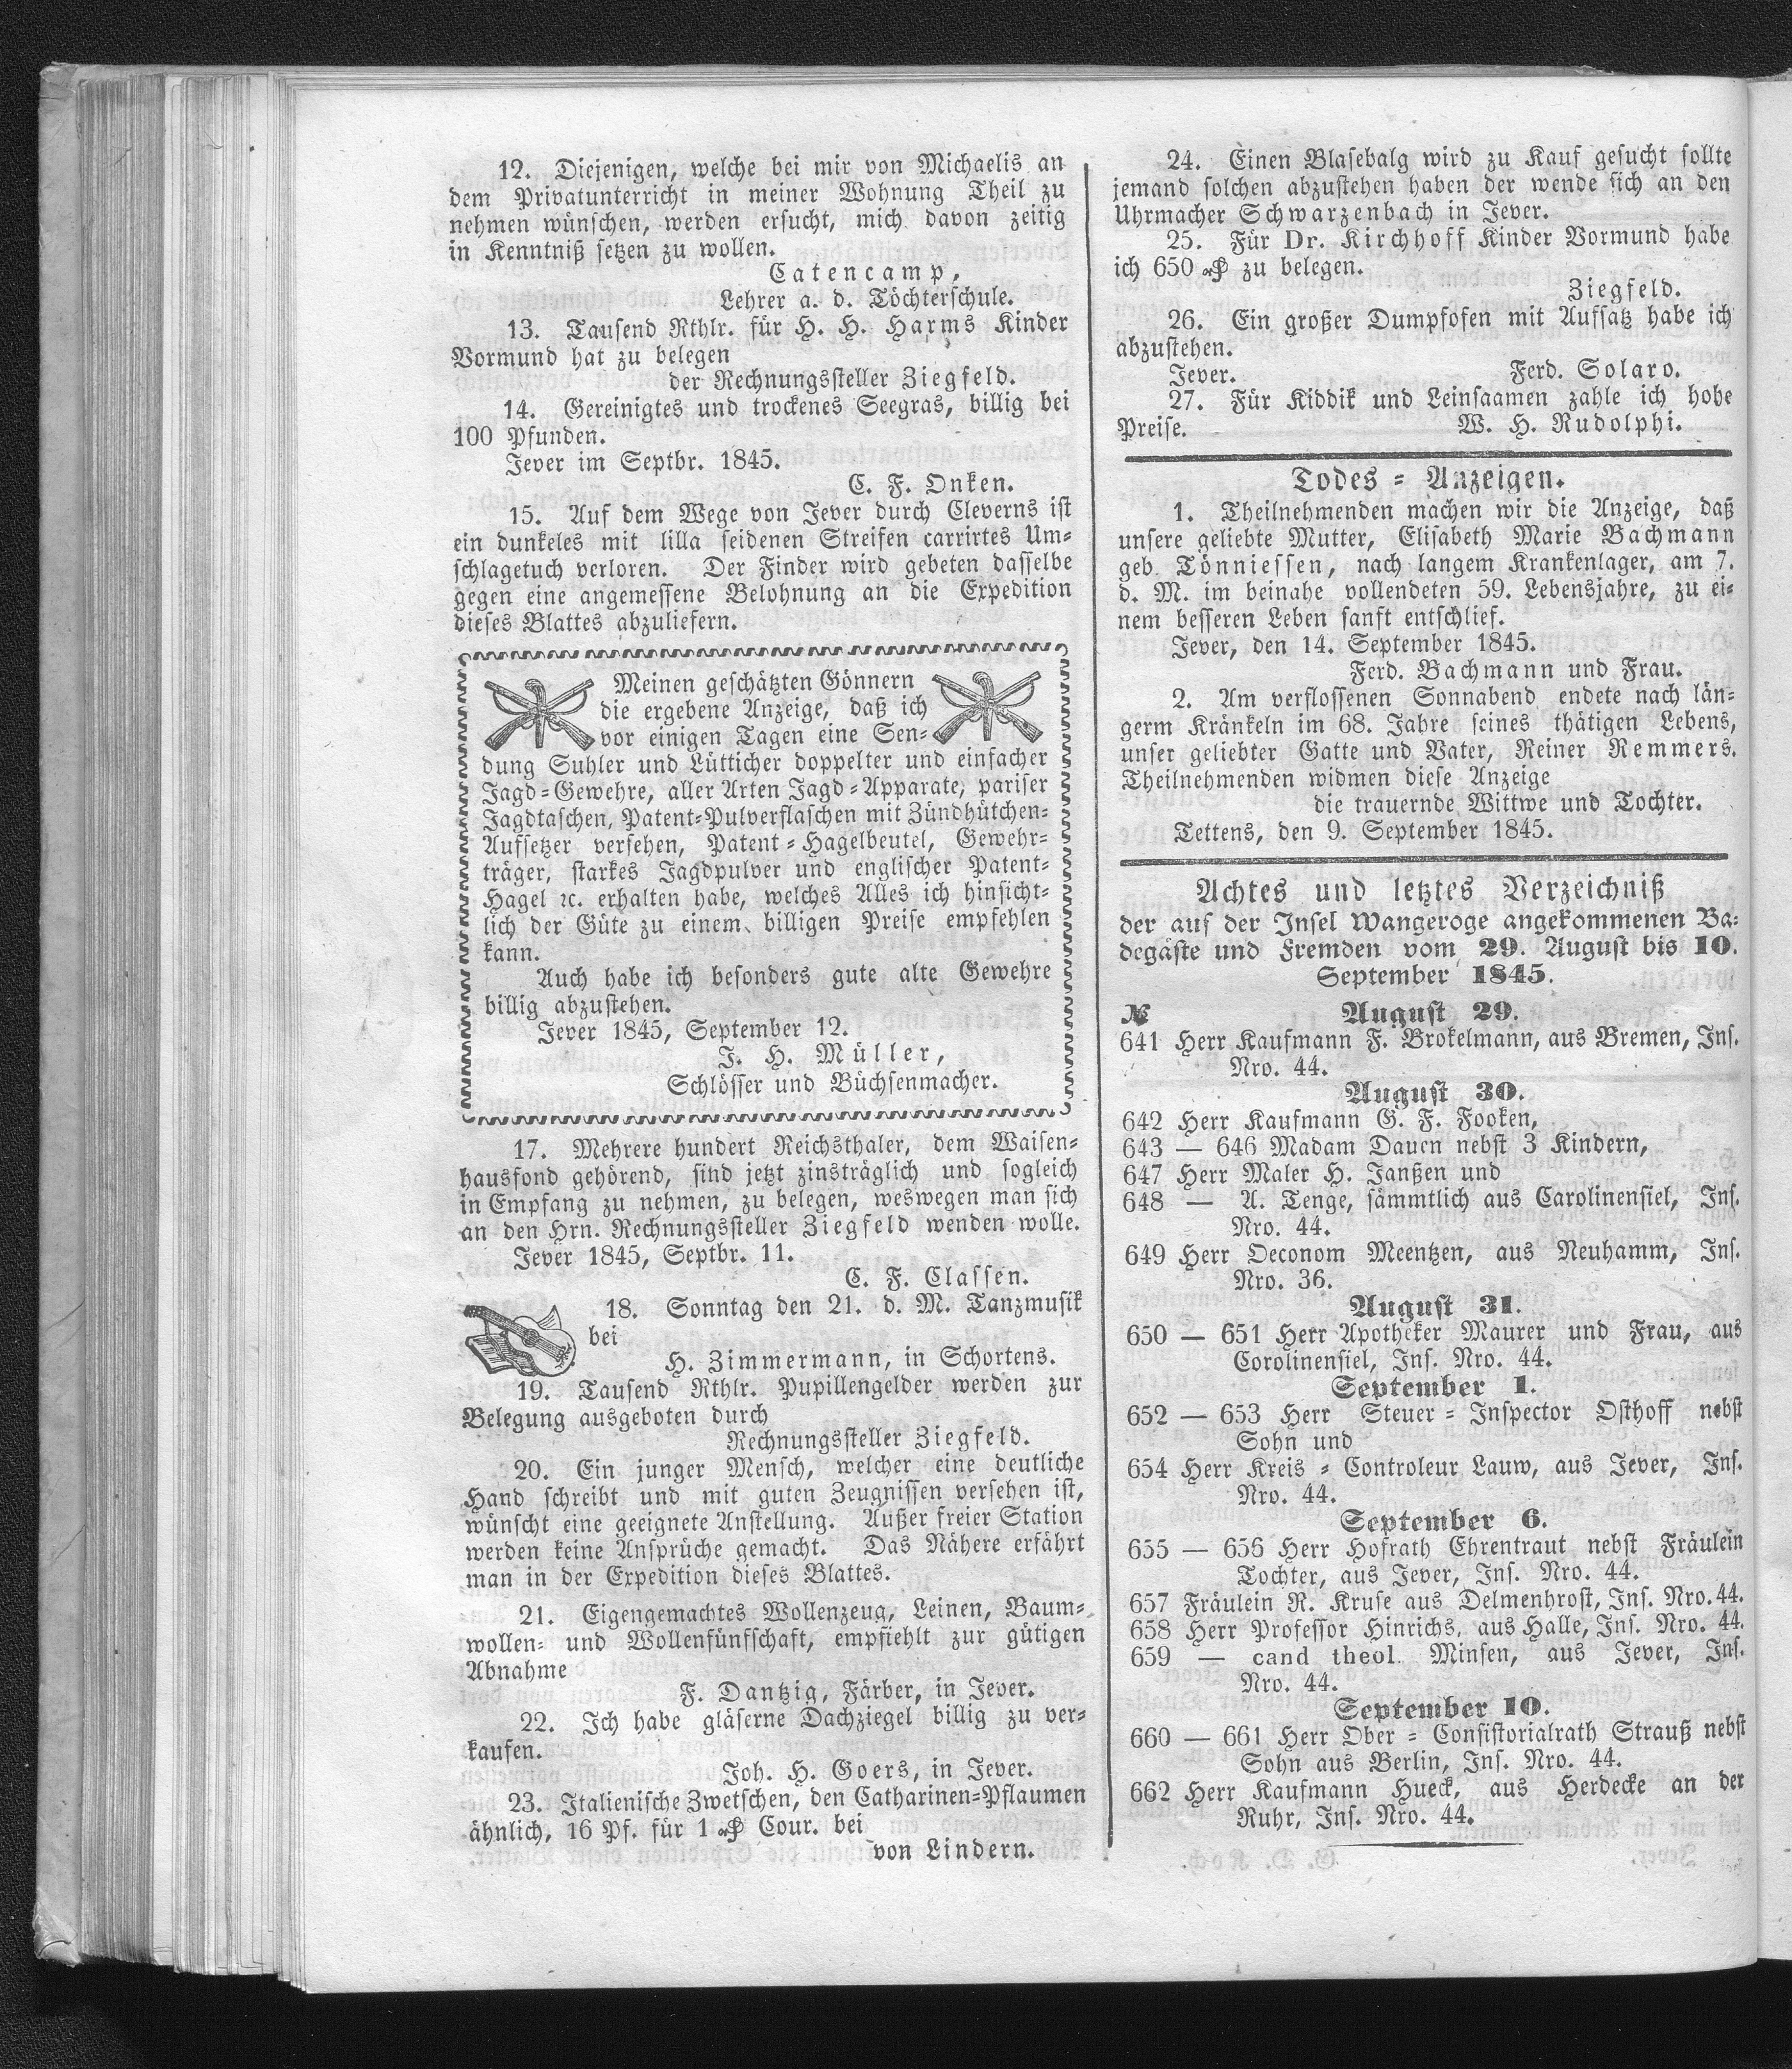 12. Diejenigen, welche bei mir von Michaelis an
dem Privatunterricht in meiner Wohnung Theil zu
nehmen wünschen, werden ersucht, mich davon zeitig
in Kenntniß setzen zu wollen.
Catencamp,
Lehrer a. d. Töchterschule.
13. Tausend Rthlr. für H. H. Harms Kinder
Vormund hat zu belegen
der Rechnungssteller Ziegfeld.
14. Gereinigtes und trockenes Seegras, billig bei
100 Pfunden.
Jever im Septbr. 1845.
C. F. Onken.
15. Auf dem Wege von Jever durch Cleverns ist
ein dunkeles mit lilla seidenen Streifen carrirtes Um-
schlagetuch verloren. Der Finder wird gebeten dasselbe
gegen eine angemessene Belohnung an die Expedition
dieses Blattes abzuliefern.
Meinen geschätzten Gönnern
die ergebene Anzeige, daß ich
vor einigen Tagen eine Sen-
dung Suhler und Lütticher doppelter und einfacher
Jagd-Gewehre, aller Arten Jagd-Apparate, pariser
Jagdtaschen, Patent-Pulverflaschen mit Zündhütchen-
Aufsetzer versehen, Patent-Hagelbeutel, Gewehr-
träger, starkes Jagdpulver und englischer Patent-
Hagel ꝛc. erhalten habe, welches Alles ich hinsicht-
lich der Güte zu einem billigen Preise empfehlen
kann.
Auch habe ich besonders gute alte Gewehre
billig abzustehen.
Jever 1845, September 12.
J. H. Müller,
Schlösser und Büchsenmacher.
17. Mehrere hundert Reichsthaler, dem Waisen-
hausfond gehörend, sind jetzt zinsträglich und sogleich
in Empfang zu nehmen, zu belegen, weswegen man sich
an den Hrn. Rechnungssteller Ziegfeld wenden wolle.
Jever 1845, Septbr. 11.
C. F. Classen.
18. Sonntag den 21. d. M. Tanzmusik
bei
H. Zimmermann, in Schortens.
19. Tausend Rthlr. Pupillengelder werden zur
Belegung ausgeboten durch
Rechnungssteller Ziegfeld.
20. Ein junger Mensch, welcher eine deutliche
Hand schreibt und mit guten Zeugnissen versehen ist,
wünscht eine geeignete Anstellung. Außer freier Station
werden keine Ansprüche gemacht. Das Nähere erfährt
man in der Expedition dieses Blattes.
21. Eigengemachtes Wollenzeug, Leinen, Baum-
wollen- und Wollenfünfschaft, empfiehlt zur gütigen
Abnahme
F. Dantzig, Färber, in Jever.
22. Ich habe gläserne Dachziegel billig zu ver-
kaufen.
Joh. H. Goers, in Jever.
23. Italienische Zwetschen, den Catharinen-Pflaumen
ähnlich, 16 Pf. für 1 ₰ Cour. bei
von Lindern.
24. Einen Blasebalg wird zu Kauf gesucht sollte
jemand solchen abzustehen haben der wende sich an den
Uhrmacher Schwarzenbach in Jever.
25. Für Dr. Kirchhoff Kinder Vormund habe
ich 650 ₰ zu belegen.
Ziegfeld.
26. Ein großer Dumpfofen mit Aufsatz habe ich
abzustehen.
Jever. Ferd. Solaro.
27. Für Kiddik und Leinsaamen zahle ich hobe
Preise. W. H. Rudolphi.
Todes-Anzeigen.
1. Theilnehmenden machen wir die Anzeige, daß
unsere geliebte Mutter, Elisabeth Marie Bachmann
geb. Tönniessen, nach langem Krankenlager, am 7.
d. M. im beinahe vollendeten 59. Lebensjahre, zu ei-
nem besseren Leben sanft entschlief.
Jever, den 14. September 1845.
Ferd. Bachmann und Frau.
2. Am verflossenen Sonnabend endete nach län-
germ Kränkeln im 68. Jahre seines thätigen Lebens,
unser geliebter Gatte und Vater, Reiner Remmers.
Theilnehmenden widmen diese Anzeige
die trauernde Wittwe und Tochter.
Tettens, den 9. September 1845.
Achtes und letztes Verzeichniß
der auf der Insel Wangeroge angekommenen Ba-
degäste und Fremden vom 29. August bis 10.
September 1845.
№ August 29.
641 Herr Kaufmann F. Brokelmann, aus Bremen, Ins.
Nro. 44.
August 30.
642 Herr Kaufmann G. F. Fooken,
643 — 646 Madam Dauen nebst 3 Kindern,
647 Herr Maler H. Janßen und
648 — A. Tenge, sämmtlich aus Carolinensiel, Ins.
Nro. 44.
649 Herr Oeconom Meentzen, aus Neuhamm, Ins.
Nro. 36.
August 31.
650 — 651 Herr Apotheker Maurer und Frau, aus
Corolinensiel, Ins. Nro. 44.
September 1.
652 — 653 Herr Steuer-Inspector Osthoff nebst
Sohn und
654 Herr Kreis-Controleur Lauw, aus Jever, Ins.
Nro. 44.
September 6.
655 — 656 Herr Hofrath Ehrentraut nebst Fräulein
Tochter, aus Jever, Ins. Nro. 44.
657 Fräulein R. Kruse aus Delmenhrost, Ins. Nro. 44.
658 Herr Professor Hinrichs, aus Halle, Ins. Nro. 44.
659 — cand theol. Minsen, aus Jever, Ins.
Nro. 44.
September 10.
660 — 661 Herr Ober-Consistorialrath Strauß nebst
Sohn aus Berlin, Ins. Nro. 44.
662 Herr Kaufmann Hueck, aus Herdecke an der
Ruhr, Ins. Nro. 44.